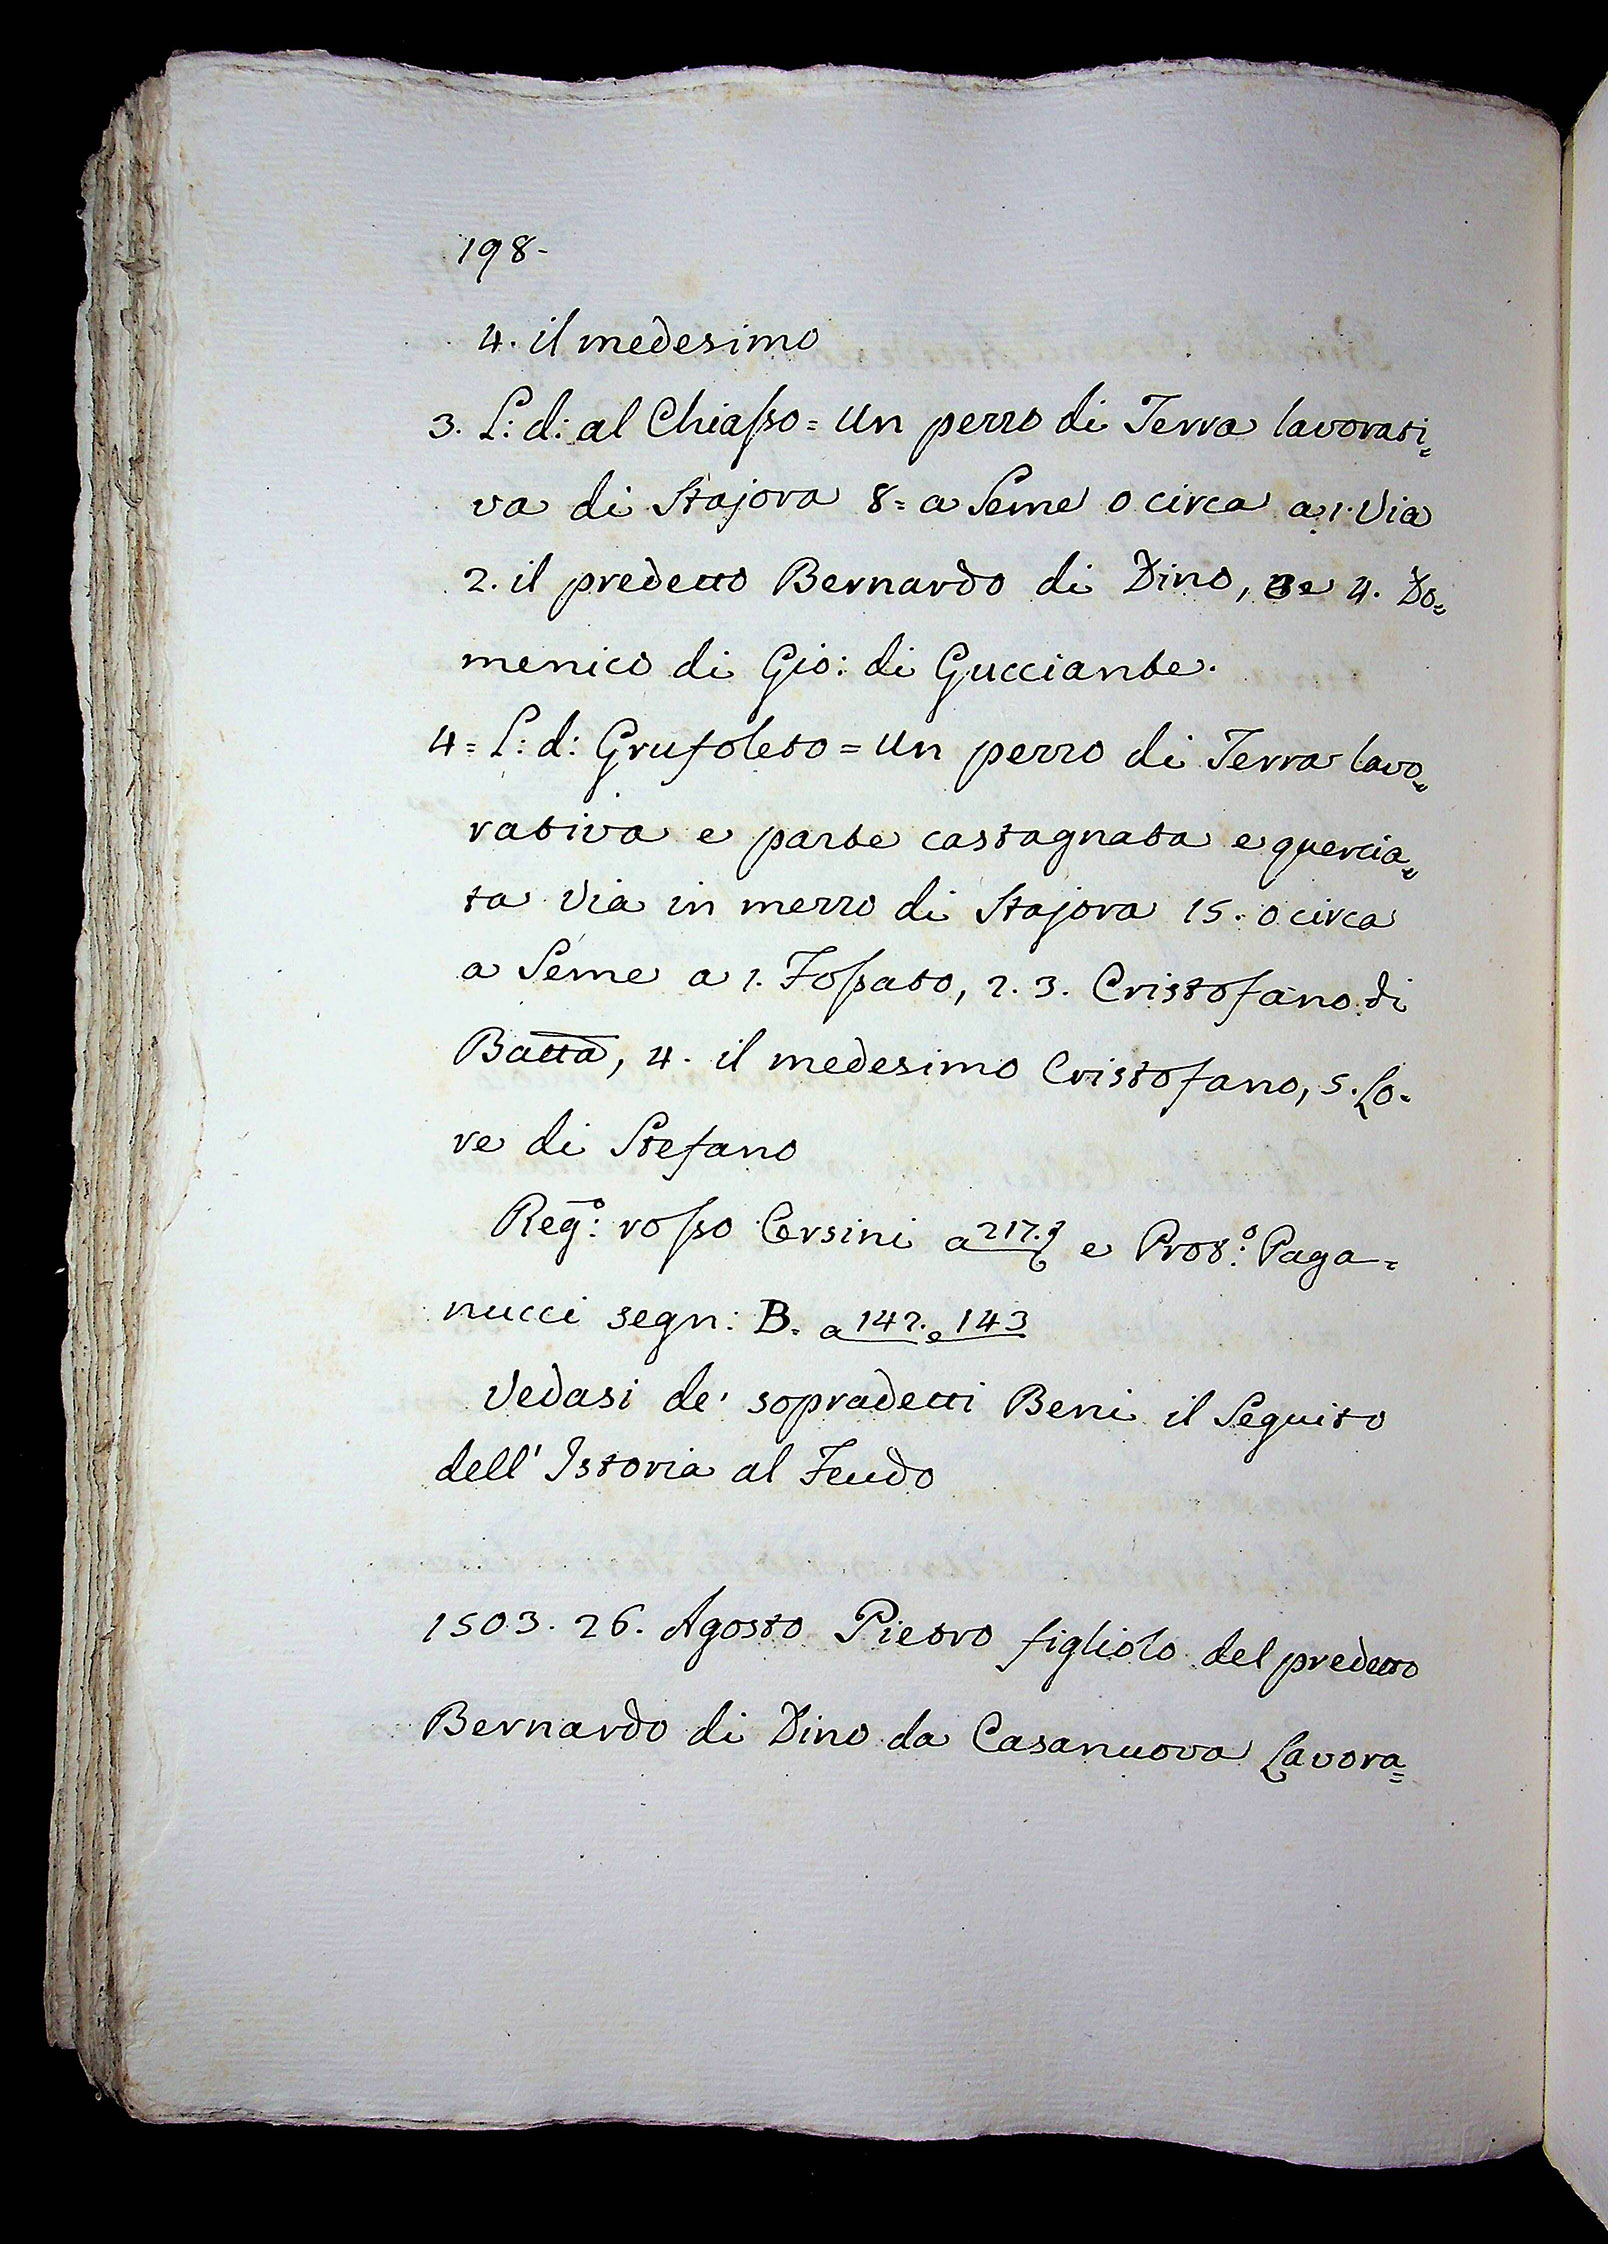 198-
4. il medesimo
3. L: d: al Chiasso = Un pezzo di Terra lavorati=
va di Stajora 8 = a Seme o circa a 1. Via
2. il predetto Bernardo di Dino, 3 e 4. Do=
menico di Gio: di Gucciante.
4 = L: d: Grufoleto = Un pezzo di Terra lavo=
rativa e parte castagnata e quercia=
ta Via in mezzo di Stajora 15. o circa
a Seme a 1. Fossato, 2. 3. Cristofano di
Batta, 4. il medesimo Cristofano, 5. Lo=
re di Stefano
Reg:º rosso Corsini a 217. e Prot:º Paga=
nucci segn: B. a 142. e 143
Vedasi de' sopradetti Beni il Seguito
dell' Istoria al Feudo
1503. 26. Agosto Pietro figliolo del predetto
Bernardo di Dino da Casanuova Lavora=